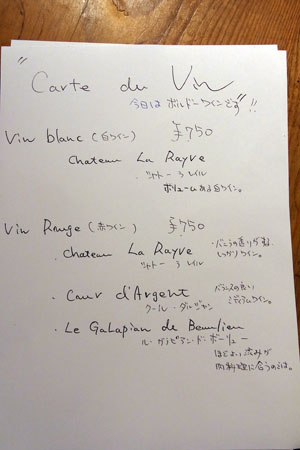 "Carte du Vin"
今日は ボルドーワインです!!
Vin blanc (白ワイン) ¥750
Chateau La Rayre
シャトー ラ レイル
ボリュームある白ワイン。
Vin Rouge (赤ワイン) ¥750
・Chateau La Rayre
シャトー ラ レイル
・バニラの香りが
しっかりワイン。
・Cœur d'Argent
クール・ダルジャン
バランスの良い
ミディアムワイン。
・Le Galapian de Beaulieu
ル・ガラピアン・ド・ボーリュー
ほどよい渋みが
肉料理に合うのでは。